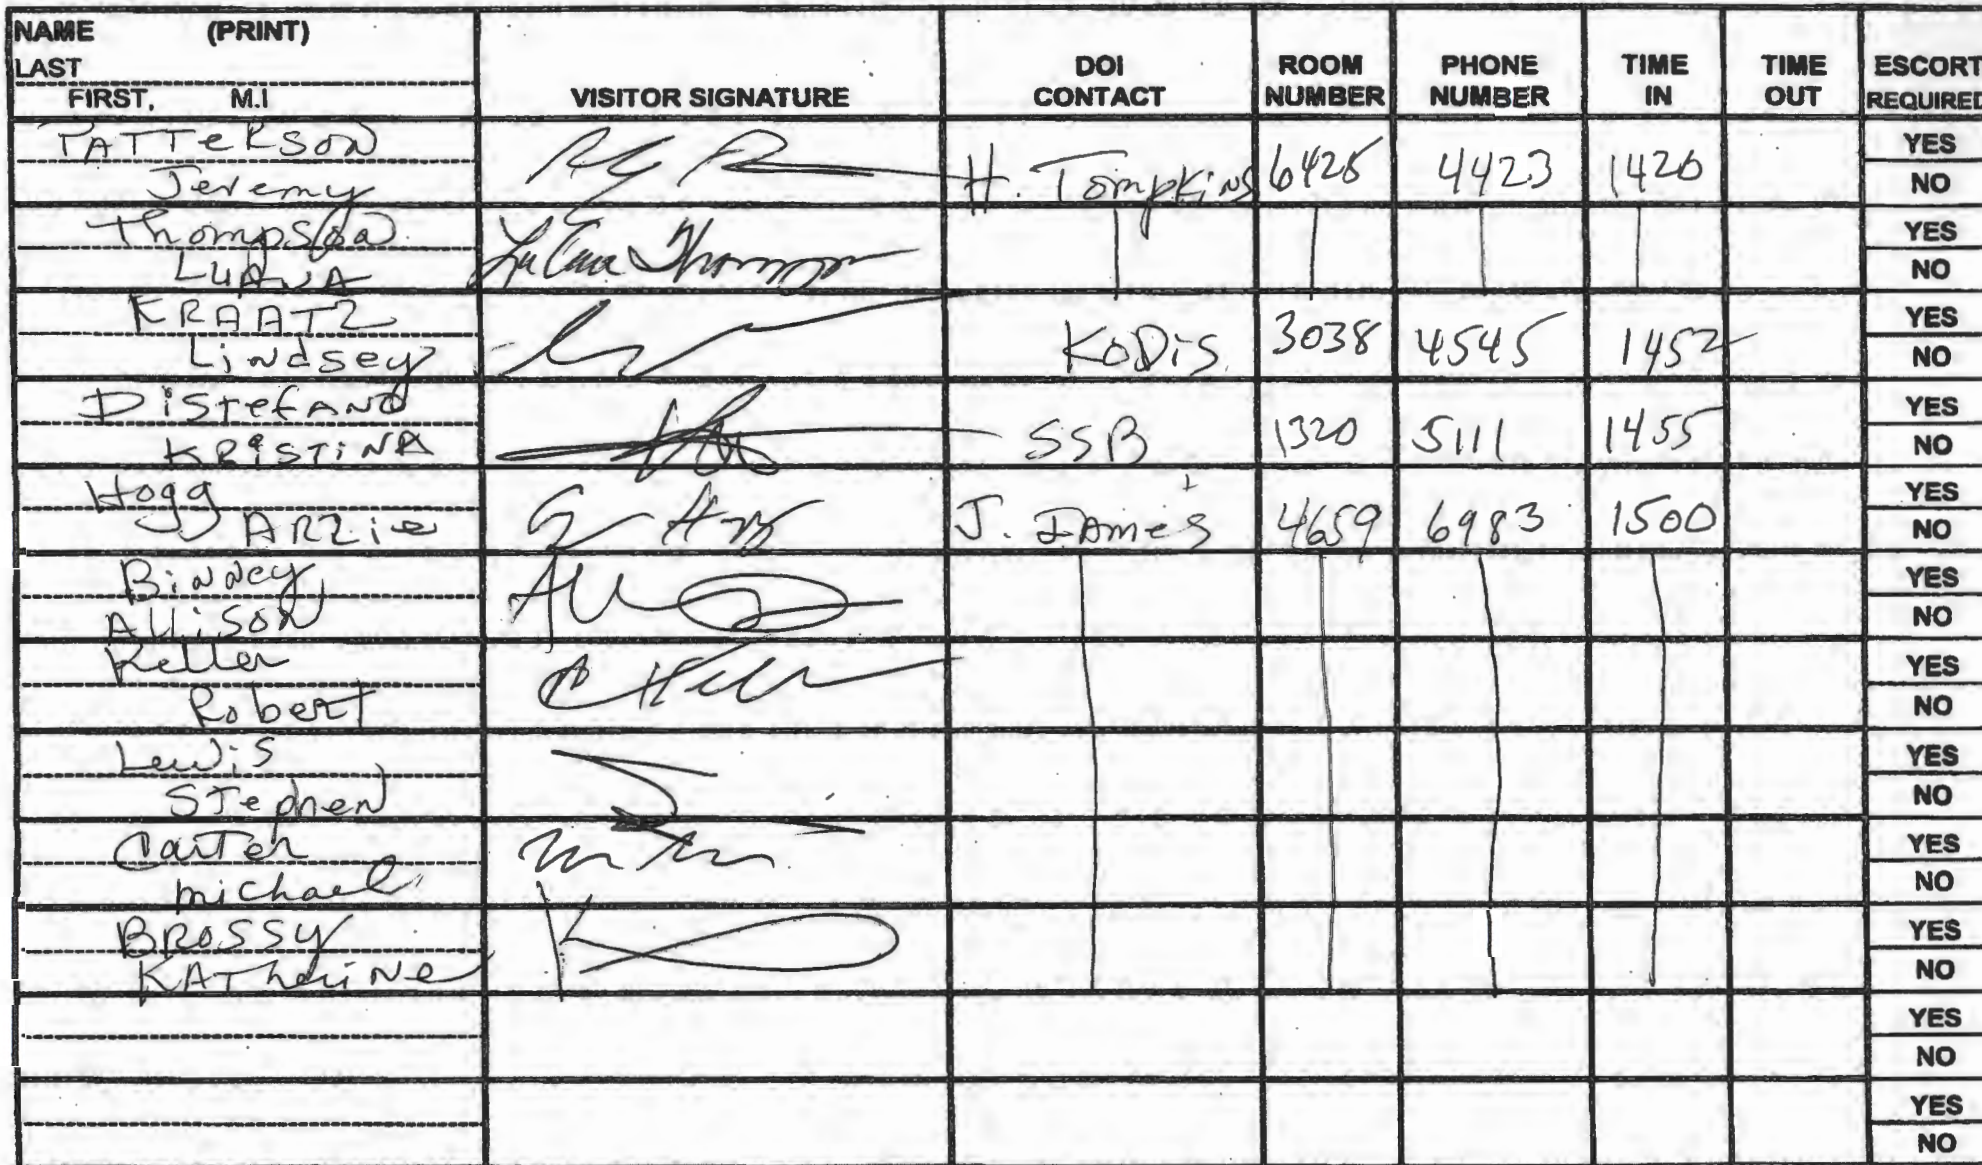 NAME (PRINT)
LAST
FIRST, M.I
VISITOR SIGNATURE
DOI CONTACT
ROOM NUMBER
PHONE NUMBER
TIME IN
TIME OUT
ESCORT REQUIRED
PATTERSON
Jeremy
H. Tompkins 6426 4423 1420
YES
NO
Thompson
LuAnA
LuAna Thompson
YES
NO
KRAATZ
Lindsey
KODiS 3038 4545 1452
YES
NO
DiSTEFANO
KRiSTiNA
SSB 1320 5111 1455
YES
NO
Hogg
ARZie
J. JAmes 4659 6983 1500
YES
NO
Binney
AlliSON
YES
NO
Keller
Robert
YES
NO
Lewis
STephen
YES
NO
Carter
michael
YES
NO
BROSSY
KATherine
YES
NO
YES
NO
YES
NO